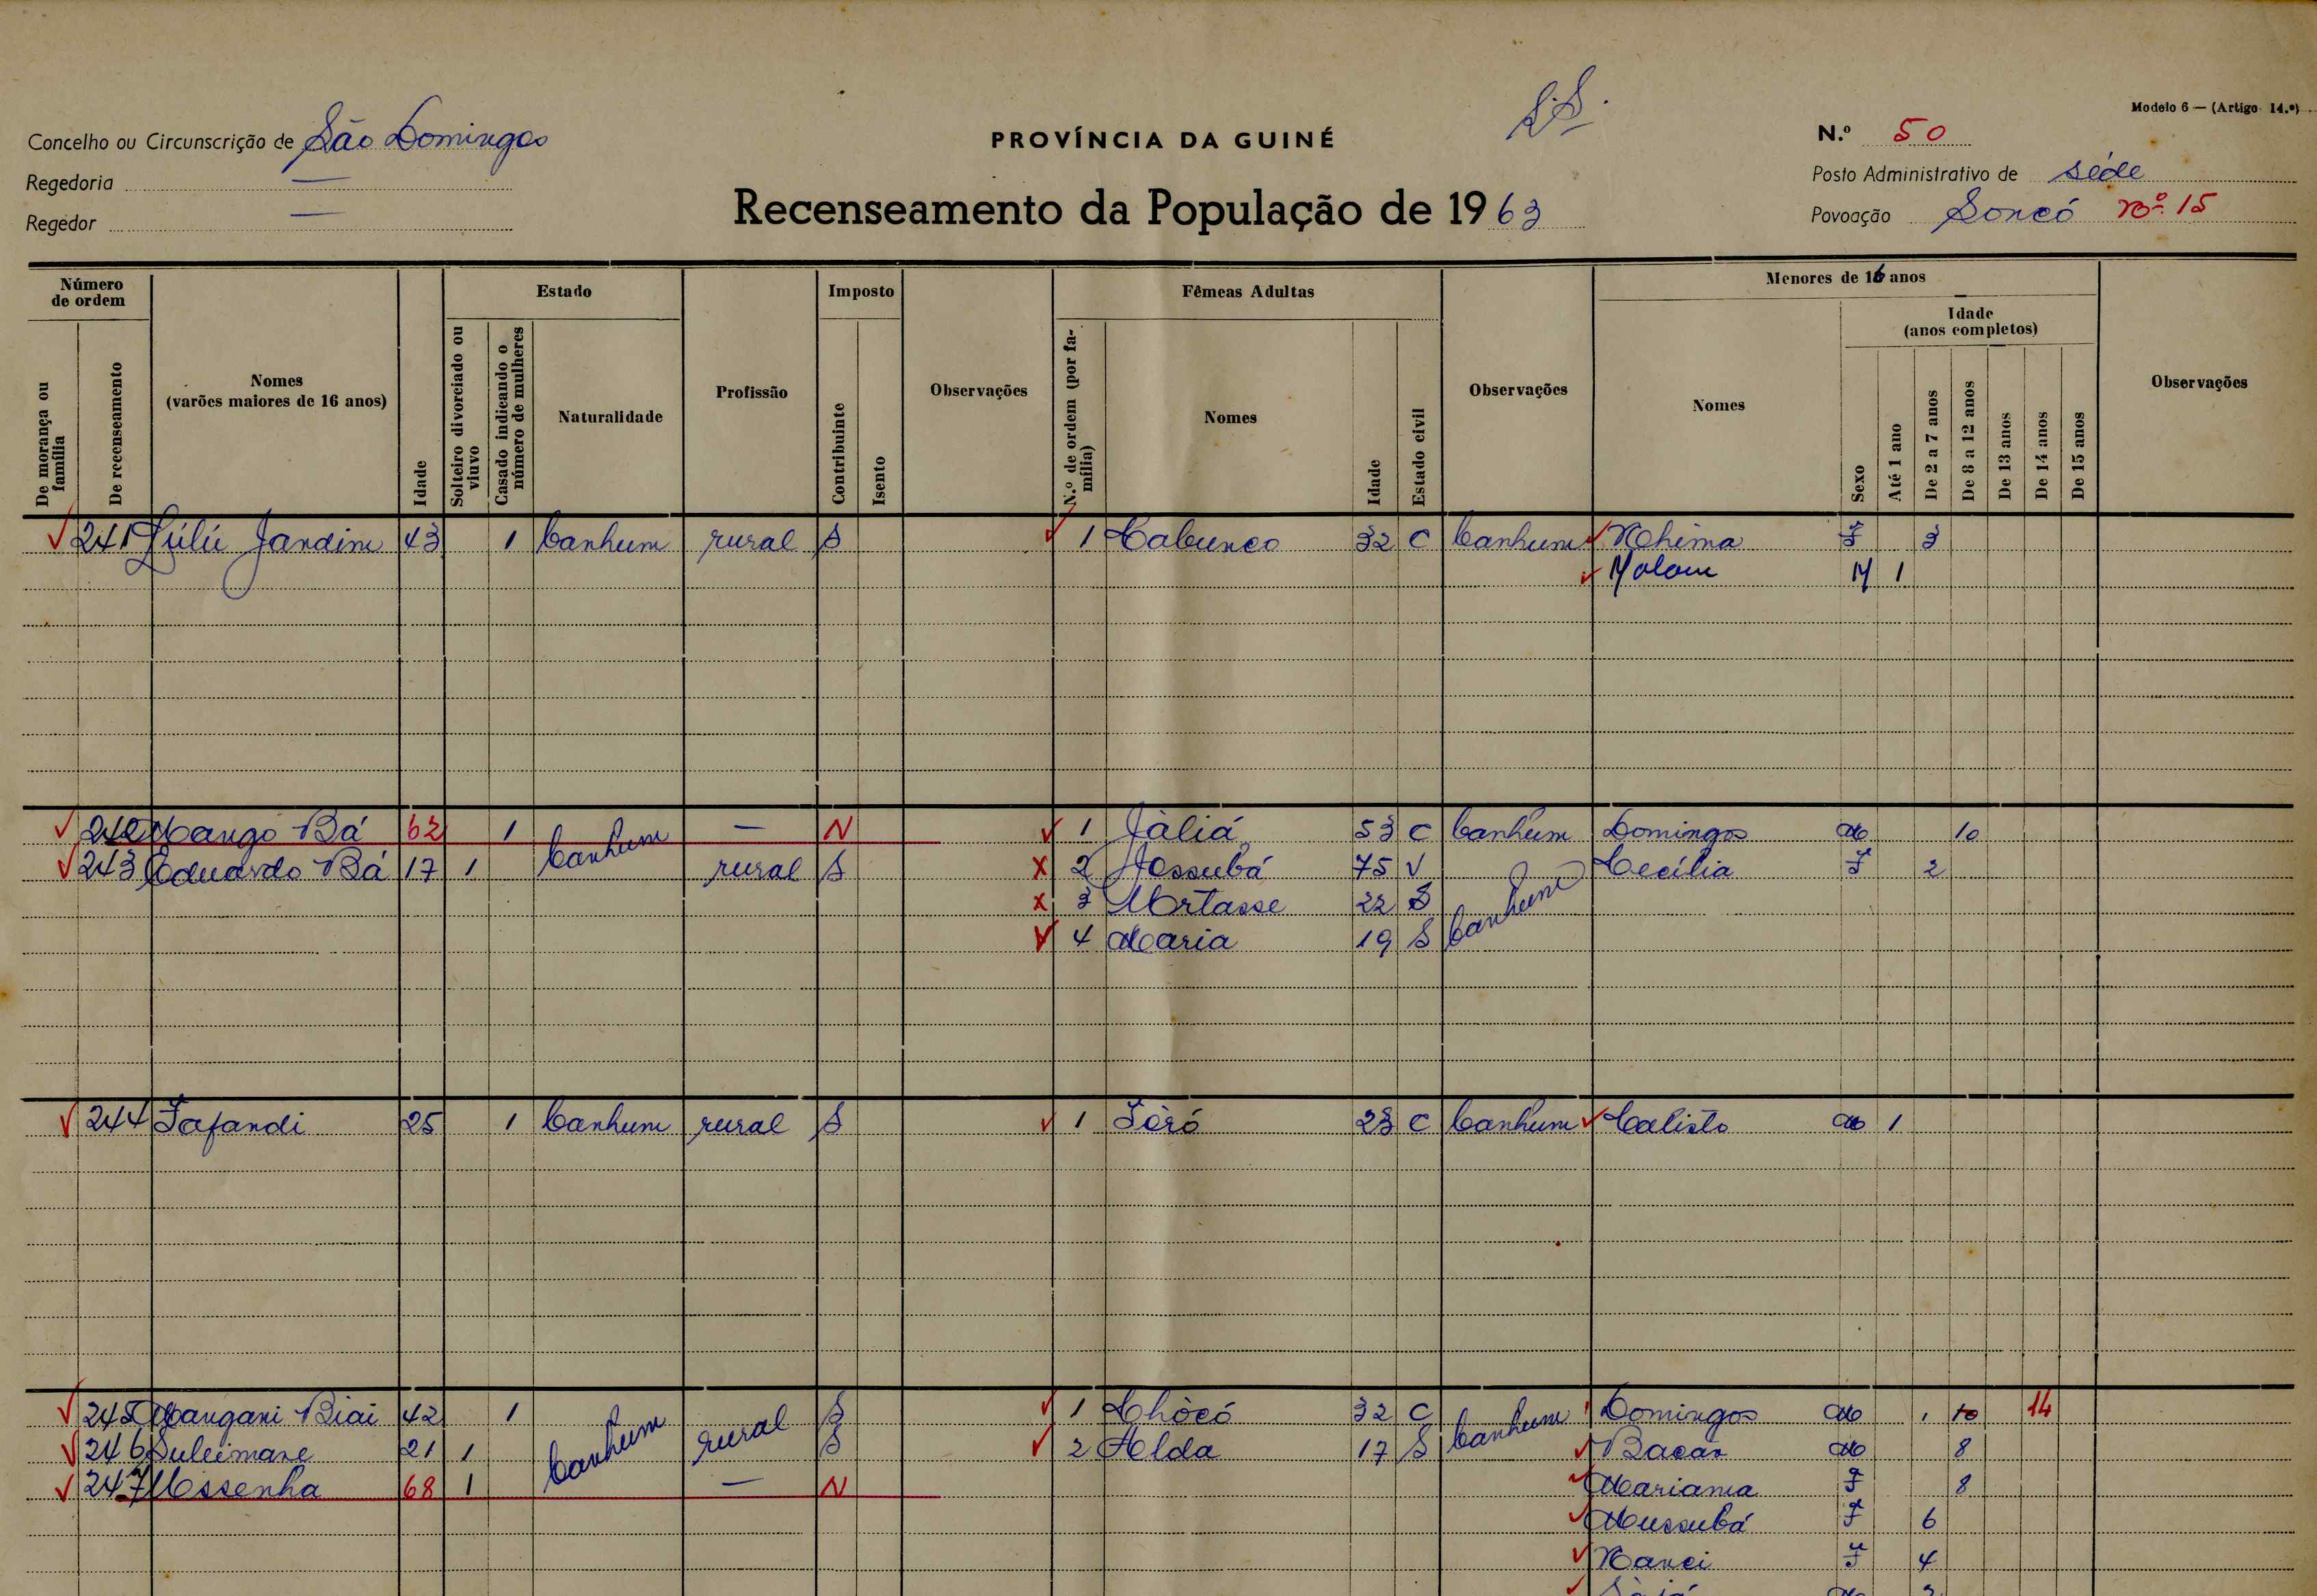 S.S.
Modelo 6 — (Artigo 14.º)
Concelho ou Circunscrição de São Domingos
PROVÍNCIA DA GUINÉ
N.º 50
Regedoria —
Posto Administrativo de Séde
Regedor —
Recenseamento da População de 1963
Povoação Soncó Nº 15
Número de ordem
Estado
Imposto
Fêmeas Adultas
Menores de 16 anos
Idade (anos completos)
De morança ou família
De recenseamento
Nomes (varões maiores de 16 anos)
Idade
Solteiro divorciado ou viuvo
Casado indicando o número de mulheres
Naturalidade
Profissão
Contribuinte
Isento
Observações
N.º de ordem (por família)
Nomes
Idade
Estado civil
Observações
Nomes
Sexo
Até 1 ano
De 2 a 7 anos
De 8 a 12 anos
De 13 anos
De 14 anos
De 15 anos
Observações
241 Júlú Jandim 43 1 Canhum rural S 1 Cabunco 32 C Canhum Nhima F 3
Malam M 1
242 Mango Bá 62 1 Canhum — N 1 Jàliá 53 C Canhum Domingos M 10
243 Eduardo Bá 17 1 rural S 2 Assubá 75 V Canhum Cecília F 2
3 22 S
4 Maria 19 S
244 Jafandi 25 1 Canhum rural S 1 Tôró 23 C Canhum Calisto M 1
245 Mangani Biai 42 1 Canhum rural S 1 Chòcó 32 C Canhum Domingos M 10 14
246 Suleimane 21 1 S 2 Alda 17 S Bacar M 8
247 Ussenha 68 1 — N Mariama F 8
Mussubá F 6
Nanci F 4